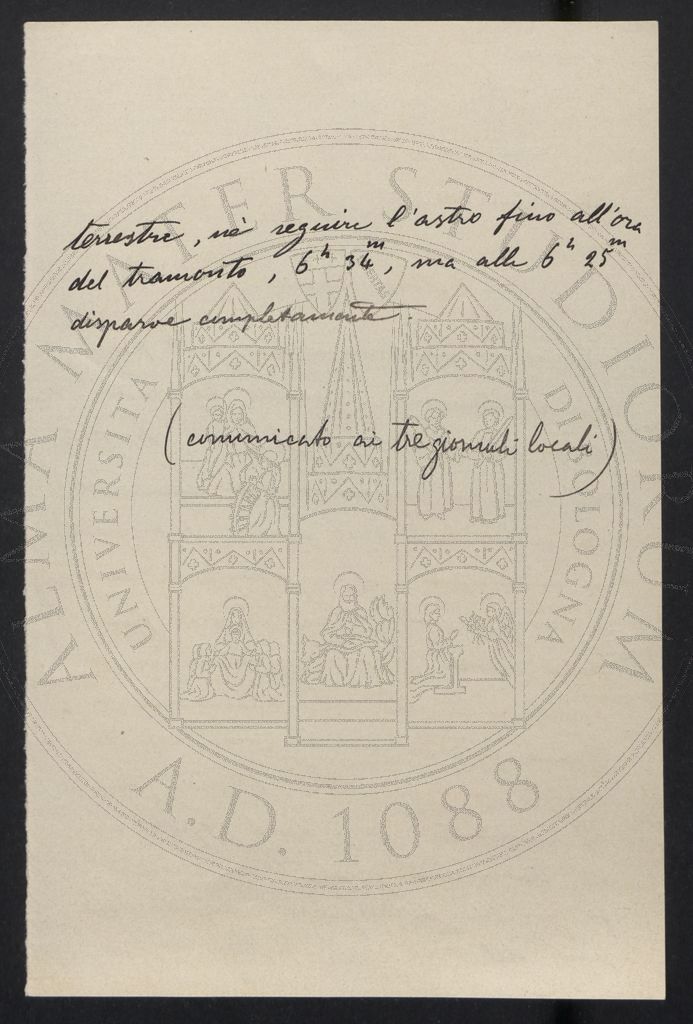 terrestre, nè seguire l'astro fino all'ora
del tramonto, 6h 34m, ma alle 6h 25m
disparve completamente.
(comunicato ai tre giornali locali)
ALMA MATER STUDIORUM
UNIVERSITA DI BOLOGNA
A.D. 1088